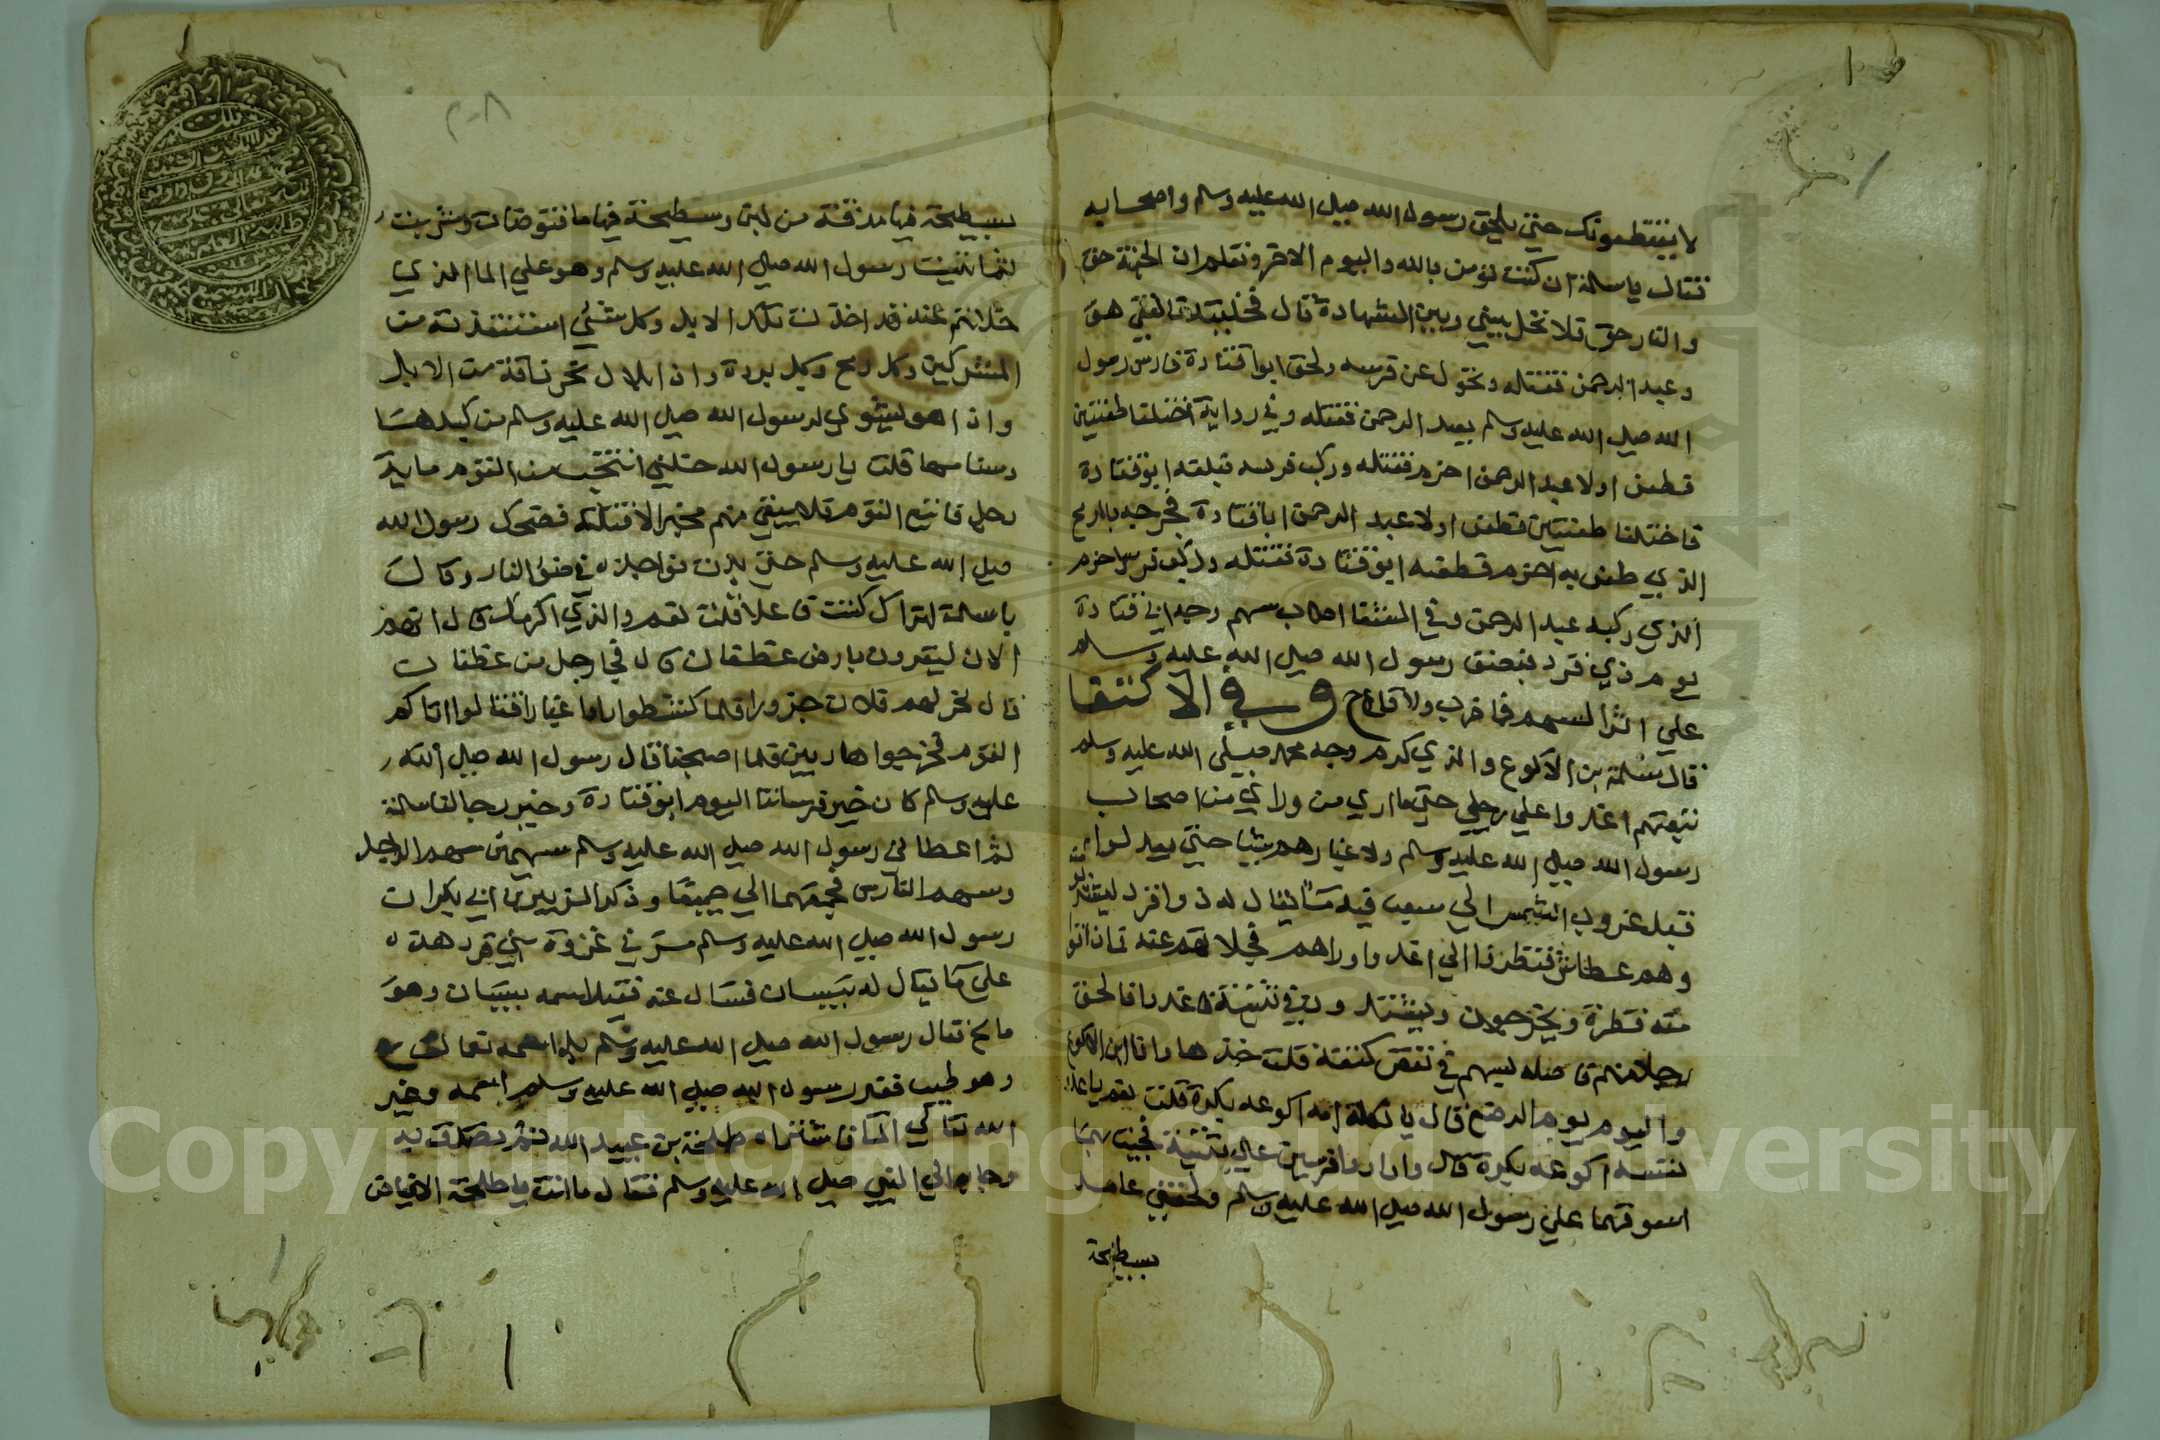 لا يقتطعونك حتى يلحق رسول الله صلى الله عليه وسلم واصحابه
فقال يا سلمة ان كنت تؤمن بالله واليوم الاخر وتعلم ان الجنة حق
والنار حق فلا تخل بيني وبين الشهادة قال فخليته فالتقى هو
وعبد الرحمن فقتله وتحول عن فرسه ولحق ابوا قتادة فارس رسول
الله صلى الله عليه وسلم بعبد الرحمن فقتله وفي رواية اختلفا طعنتين
فطعن اولا عبد الرحمن احزم فقتله وركب فرسه فلحقه ابو قتادة
فاختلفا طعنتين فطعن اولا عبد الرحمن ابا قتادة فجرحه بالرمح
الذي طعن به احزم فطعنه ابو قتادة فقتله وركب فرس احزم
الذي ركبه عبد الرحمن وفي الشفا اصاب سهم وجه ابي قتادة
يوم ذي قرد فبصق رسول الله صلى الله عليه وسلم
على اثر السهم فما ضرب ولا قاح وفي الاكتفا
قال سلمة بن الاكوع والذي كرم وجه محمد صلى الله عليه وسلم
تبعتهم اعدوا على رجلي حتى ما ارى من وراي من اصحاب
رسول الله صلى الله عليه وسلم ولا غبارهم شيا حتى يعدلوا
قبل غروب الشمس الى شعب فيه ماء يقال له ذوا قرد ليشربوا منه
وهم عطاش فنظروا الي اعدوا وراهم فجلاهم عنه فما ذاقوا
منه قطرة ويخرجون ويشتد وفي ثنية فاعدوا فالحق
رجلا منهم فاصله بسهم في نغض كتفه قلت خذها وانا ابن الاكوع
واليوم يوم الرضع قال يا ثكلة امه اكوعه بكرة قلت نعم يا عدو
نفسه اكوعه بكرة قال واردوا فرسين على ثنية فجيت بهما
اسوقهما على رسول الله صلى الله عليه وسلم ولحقني عامر
بسطيحة
٢٠٨
بسطيحة فيها مذقة من لبن وسطيحة فيها ما فتوضات وشربت
ثم اتيت رسول الله صلى الله عليه وسلم وهو على الما الذي
حلاتهم عنه قد اخذت تلك الابل وكل شئ استنقذته من
المشركين وكل رمح وكل بردة واذا بلال نحر ناقة من الابل
واذا هو يشوي لرسول الله صلى الله عليه وسلم من كبدها
وسنامها قلت يا رسول الله خلني انتخب من القوم ماية
رجل فاتبع القوم فلا يبقى منهم مخبر الا قتلته فضحك رسول الله
صلى الله عليه وسلم حتى بدت نواجذه في ضوء النار وقال
يا سلمة اتراك كنت فاعلا قلت نعم والذي اكرمك قال انهم
الان ليقرون بارض غطفان قال فجا رجل من غطفان
قال نحر لهم فلان جزورا فلما كشطوا راوا غبارا فقالوا اتاكم
القوم فخرجوا هاربين فلما اصبحنا قال رسول الله صلى الله
عليه وسلم كان خير فرساننا اليوم ابو قتادة وخير رجالنا سلمة
ثم اعطاني رسول الله صلى الله عليه وسلم سهمين سهم الراجل
وسهم الفارس فجمعهما الي جميعا وذكر الزبير بن ابي بكر ان
رسول الله صلى الله عليه وسلم مر في غزوة ذي قرد هذه
على ما يقال له بيسان فسال عنه فقيل اسمه بيسان وهو
مالح فقال رسول الله صلى الله عليه وسلم بل اسمه نعمان
وهو طيب فغير رسول الله صلى الله عليه وسلم اسمه وغير
الله تعالى الما فاشتراه طلحة بن عبيد الله ثم تصدق به
وجا الى النبي صلى الله عليه وسلم فقال ما انت يا طلحة الا فياض
Copyright © King Saud University